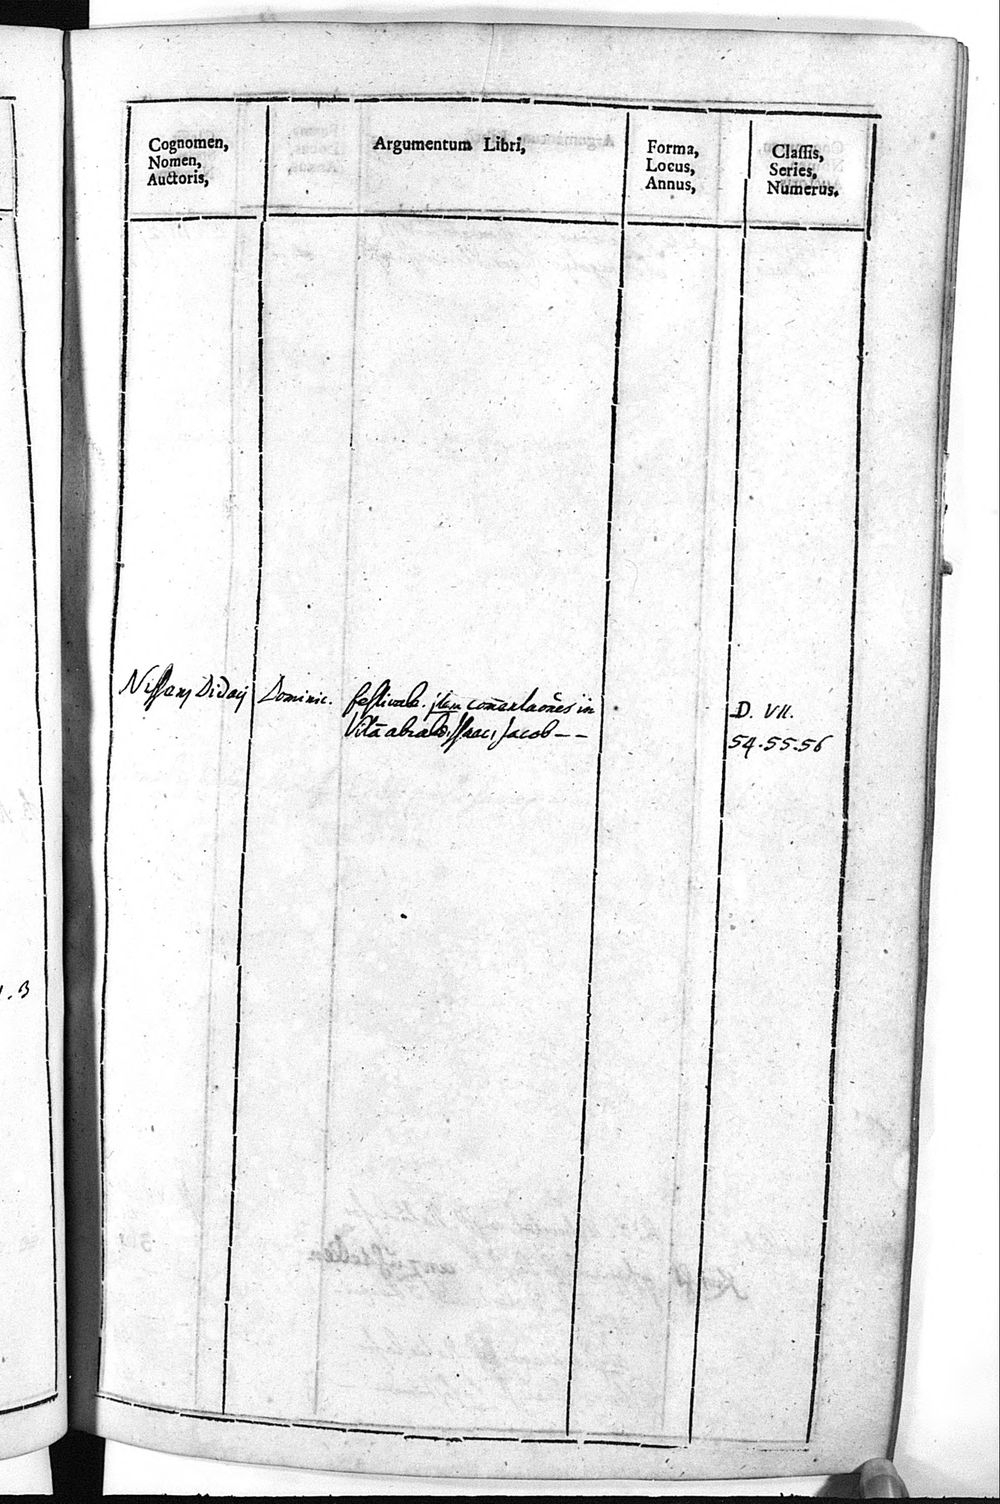 Cognomen,
Nomen,
Auctoris,
Argumentum Libri,
Forma,
Locus,
Annus,
Classis,
Series,
Numerus.
Nissanj Didacij Dominic. festivale. jtem com̄entaōnes in
Vitā abrah, Isaac, Jacob - -
D. VII.
54.55.56
. 3